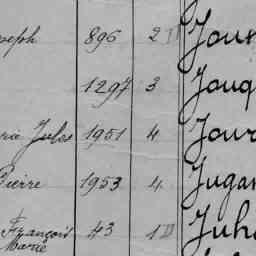 seph 896 2 Jou
1297 3 Jouq
rie Jules 1951 4 Jour
Pierre 1953 4 Jugan
François 43 1 Juh
Marie